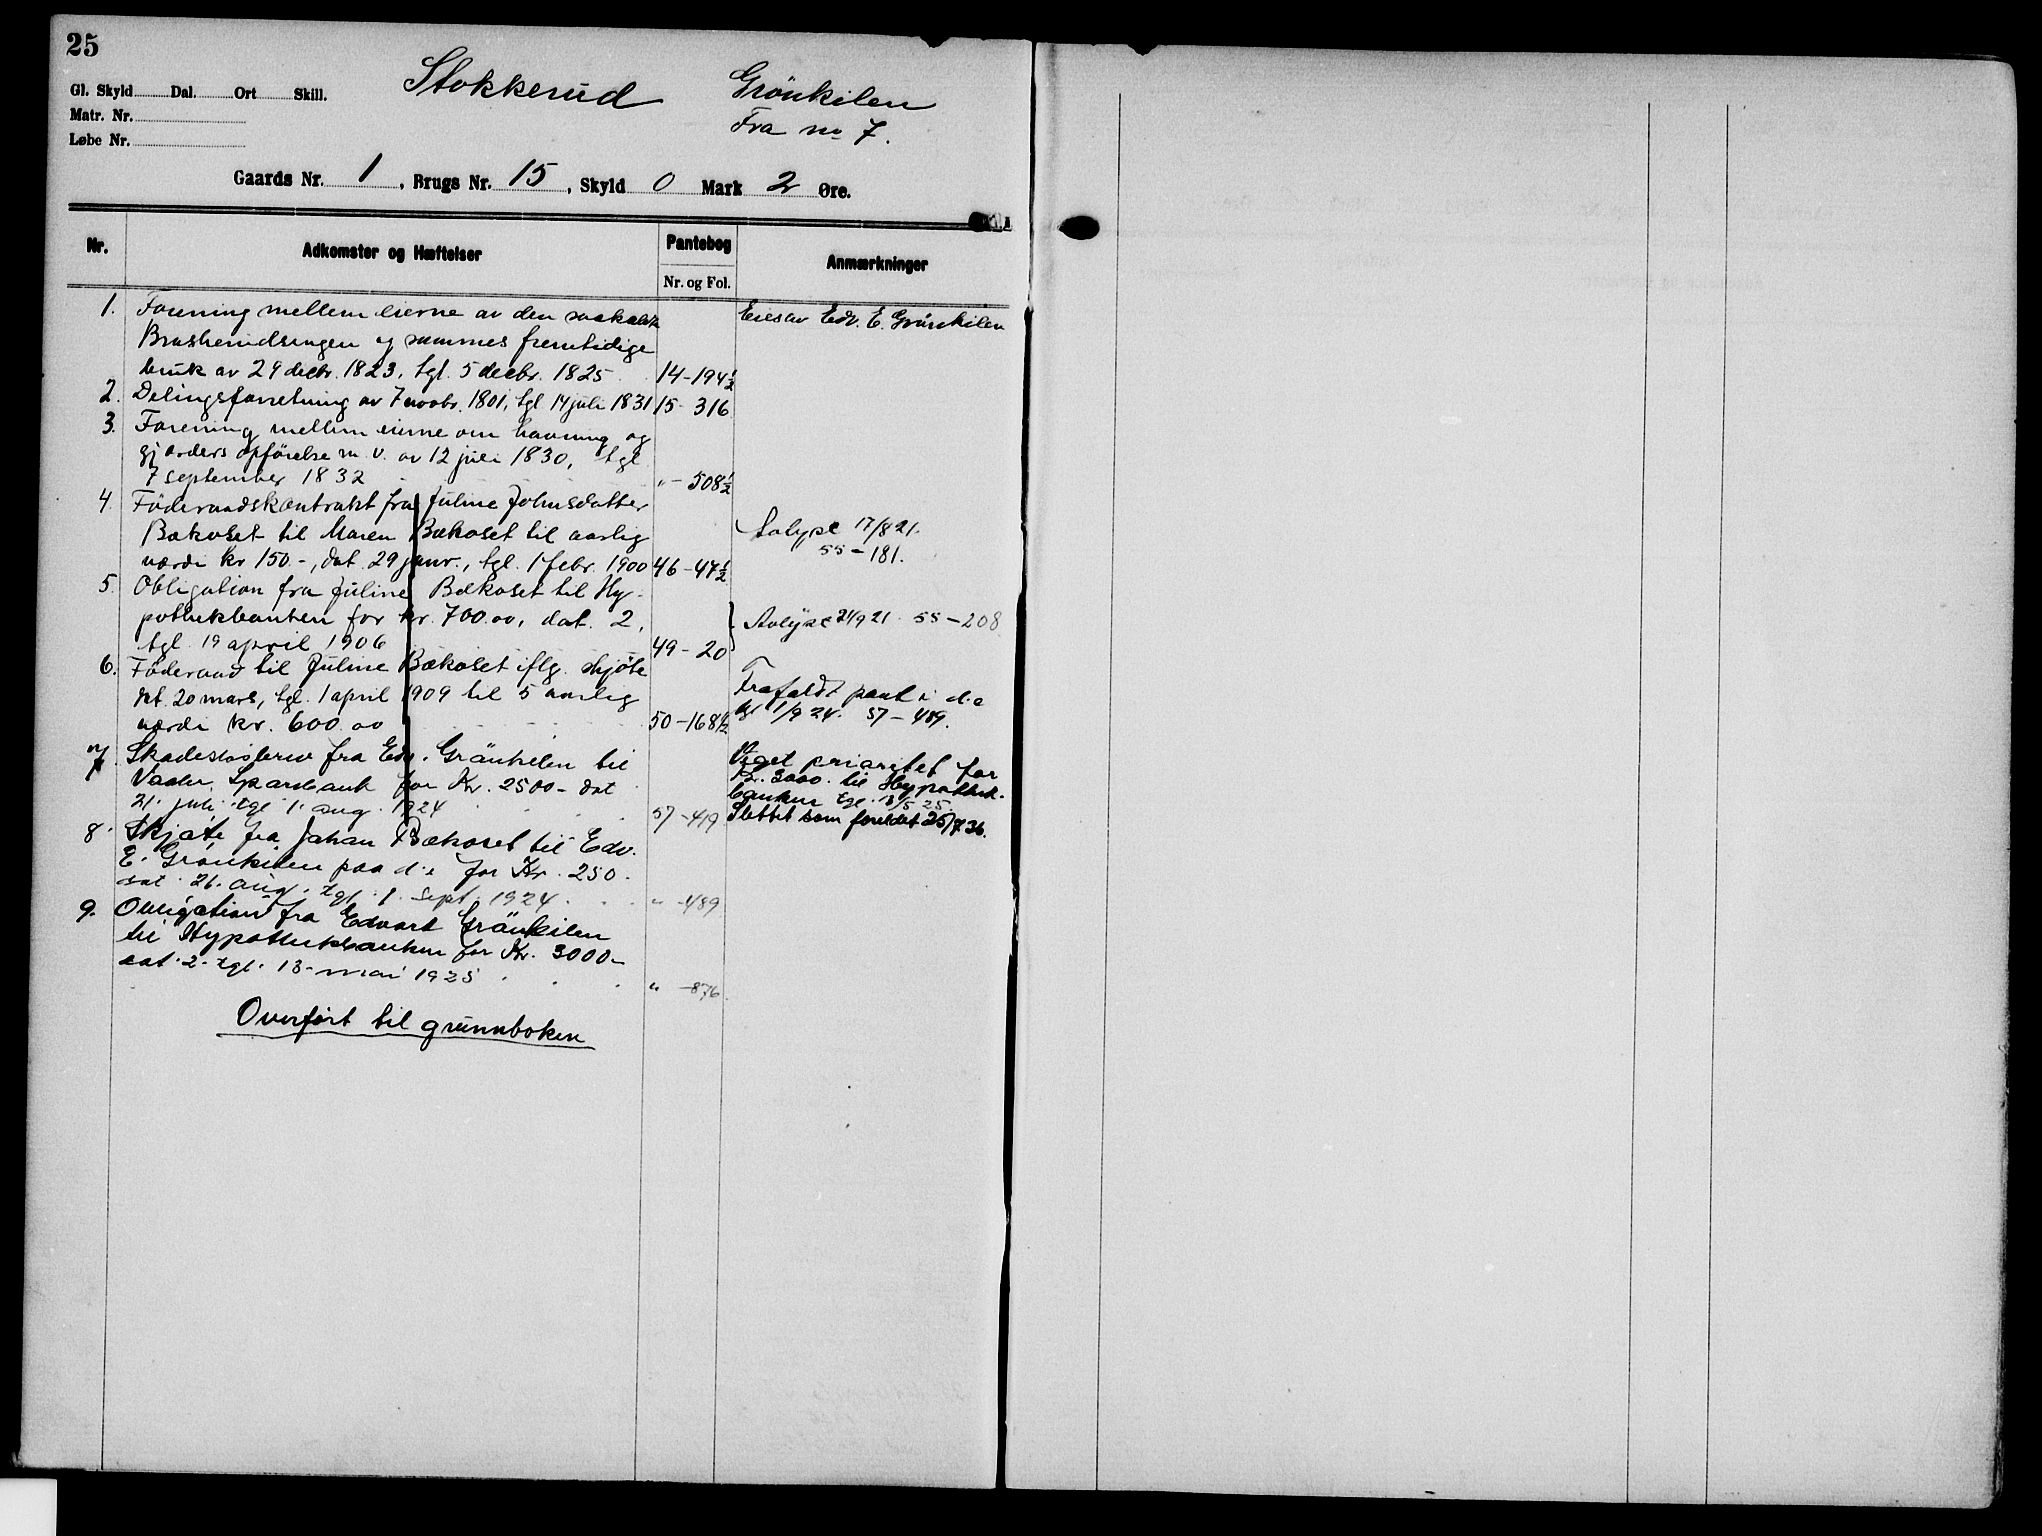 25
Gl. Skyld Dal. Ort Skill.
Matr. Nr.
Løbe Nr.
Stokkerud
Grönkilen
Fra nr 7.
Gaards Nr. 1, Brugs Nr. 15, Skyld 0 Mark 2 Øre.
Nr.
Adkomster og Hæftelser
Pantebog
Nr. og Fol.
Anmærkninger
1. Forening mellem eierne av den saakaldte
Brusherudseugen og sammes fremtidige
bruk av 29 decbr. 1823, tgl. 5 decbr. 1825 14-194½
Eies av Edv. E. Grönkilen
2. Delingsforretning av 7 novbr. 1801, tgl 14 juli 1831 15-316
3. Forening mellem eierne om havning og
gjærders opförelse m. v. av 12 juli 1830, tgl
7 september 1832 "-508½
4. Föderaadskontrakt fra Juline Johnsdatter
Bækoset til Maren Bækoset til aarlig
værdi kr 150.-, dat. 29 janr., tgl. 1 febr. 1900 46-47½
Avlyst 17/8 21.
55-181.
5. Obligation fra Juline Bækoset til Hy-
pothekbanken for kr. 700.00, dat. 2,
tgl. 19 april 1906 49-20
Avlyst 21/9 21. 55-208
6. Föderaad til Juline Bækoset iflg. skjöte
dat. 20 mars, tgl. 1 april 1909 til 5 aarlig
værdi kr. 600.00 50-168½
Frafaldt pant i d.e
tgl 1/9 24. 57-489.
7. Skadeslösbrev fra Edv. Grönkilen til
Vaaler Sparebank for Kr. 2500- dat
21. juli tgl 1. aug. 1924 57-419
Veget prioritet for
Kr. 3000. til Hypothek-
banken tgl. 13/5 25.
Slettet som foreldet 25/7 36.
8. Skjöte fra Johan Bækoset til Edv.
E. Grönkilen paa d.e for Kr. 250.
dat. 26. aug. tgl. 1. sept. 1924 "-489
9. Obligation fra Edvart Grönkilen
til Hypothekbanken for Kr. 3000-
dat. 2. tgl. 13. mai 1925 "-876.
Overført til grunnboken